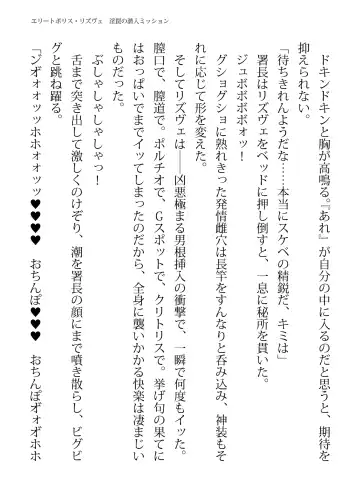 エリートポリス・リズヴェ　淫罠の潜入ミッション
　ドキンドキンと胸が高鳴る。『あれ』が自分の中に入るのだと思うと、期待を
抑えられない。
「待ちきれんようだな……本当にスケベの精鋭だ、キミは」
　署長はリズヴェをベッドに押し倒すと、一息に秘所を貫いた。
　ジュボボボボォッ！
　グショグショに熟れきった発情雌穴は長竿をすんなりと呑み込み、神装もそ
れに応じて形を変えた。
　そしてリズヴェは――凶悪極まる男根挿入の衝撃で、一瞬で何度もイッた。
膣口で、膣道で。ポルチオで、Ｇスポットで、クリトリスで。挙げ句の果てに
はおっぱいでまでイッてしまったのだから、全身に襲いかかる快楽は凄まじい
ものだった。
　ぶしゃしゃしゃしゃっ！
　舌まで突き出して激しくのけぞり、潮を署長の顔にまで噴き散らし、ビグビ
グと跳ね躍る。
「ンオォォッッホホォォッッ♥♥♥♥　おちんぽ♥♥♥　おちんぽオォオホホ